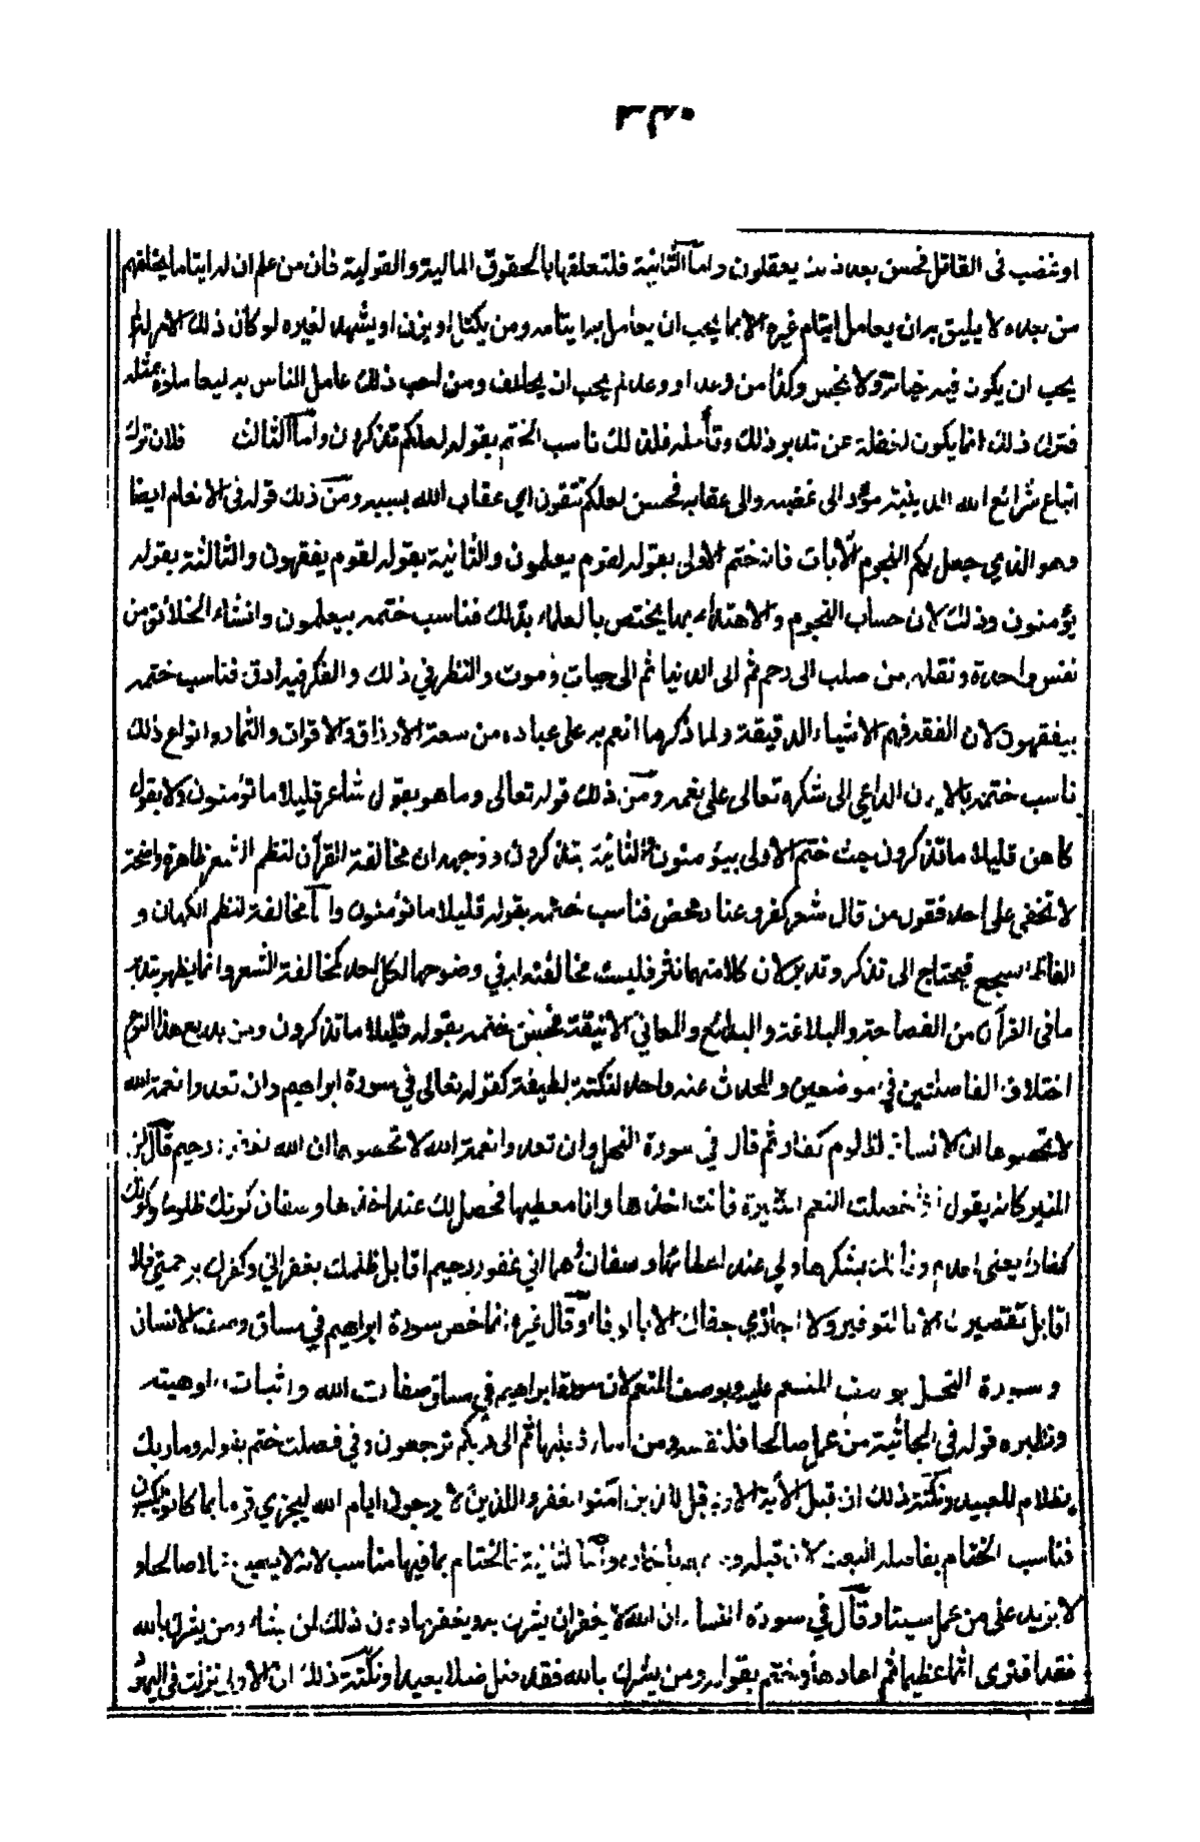 او غضب في القاتل فحسن بعد ذلك يعقلون واما الثانية فلتعلقها بالحقوق المالية والقولية فان من علم ان له ايتاما يخلفهم
من بعده لا يليق به ان يعامل ايتام غيره الا بما يحب ان يعامل به ايتامه ومن يكتال او يزن او يشهد لغيره لو كان ذلك الامر له لم
يحب ان يكون فيه خيانة ولا بخس وكذا من وعد او وعد لم يحب ان يخلف ومن احب ذلك عامل الناس به ليعاملوه بمثله
فترك ذلك انما يكون لغفلة عن تدبر ذلك وتأمله فلذلك ناسب الختم بقوله لعلكم تذكرون واما الثالث فلان ترك
اتباع شرائع الله الدينية مؤد الى غضبه والى عقابه فحسن لعلكم تتقون اي عقاب الله بسببه ومن ذلك قوله في الانعام ايضا
وهو الذي جعل لكم النجوم الآيات فانه ختم الاولى بقوله لقوم يعلمون والثانية بقوله لقوم يفقهون والثالثة بقوله
يؤمنون وذلك لان حساب النجوم والاهتداء بها يختص بالعلماء بذلك فناسب ختمه بيعلمون وانشاء الخلائق من
نفس واحدة ونقلهم من صلب الى رحم ثم الى الدنيا ثم الى حيات وموت والنظر في ذلك والفكر فيه ادق فناسب ختمه
بيفقهون لان الفقه فهم الاشياء الدقيقة ولما ذكر ما انعم به على عباده من سعة الارزاق والاقوات والثمار وانواع ذلك
ناسب ختمه بالايمان الداعي الى شكره تعالى على نعمه ومن ذلك قوله تعالى وما هو بقول شاعر قليلا ما تؤمنون ولا بقول
كاهن قليلا ما تذكرون حيث ختم الاولى بيؤمنون والثانية بتذكرون ووجهه ان مخالفة القرآن لنظم الشعر ظاهرة واضحة
لا تخفى على احد فقول من قال شعر كفر وعناد محض فناسب ختمه بقوله قليلا ما تؤمنون واما مخالفته لنظم الكهان و
الفاظ السجع فيحتاج الى تذكر وتدبر لان كلا منهما نثر فليست مخالفته له في وضوحها لكل احد كمخالفة الشعر وانما يظهر بتدبر
ما في القرآن من الفصاحة والبلاغة والبدائع والمعاني الانيقة فحسن ختمه بقوله قليلا ما تذكرون ومن بديع هذا النوع
اختلاف الفاصلتين في موضعين والمحدث عنه واحد لنكتة لطيفة كقوله تعالى في سورة ابراهيم وان تعدوا نعمة الله
لا تحصوها ان الانسان لظلوم كفار ثم قال في سورة النحل وان تعدوا نعمة الله لا تحصوها ان الله لغفور رحيم قال ابن
المنير كانه يقول اذا حصلت النعم الكثيرة فانت اخذها وانا معطيها فحصل لك عند اخذها وصفان كونك ظلوما وكونك
كفارا يعني لعدم وفائك بشكرها ولي عند اعطائها وصفان وهما اني غفور رحيم اقابل ظلمك بغفراني وكفرك برحمتي فلا
اقابل تقصيرك الا بالتوفير ولا اجازي جفاك الا بالوفاء وقال غيره انما خص سورة ابراهيم في مساق وصف الانسان
وسورة النحل بوصف المنعم عليه وبوصف المنعم لان سورة ابراهيم في مساق صفات الله واثبات الوهيته
ونظيره قوله في الجاثية من عمل صالحا فلنفسه ومن اساء فعليها ثم الى ربكم ترجعون وفي فصلت ختم بقوله وما ربك
بظلام للعبيد ونكتة ذلك ان قبل الآية الاولى قل للذين آمنوا يغفروا للذين لا يرجون ايام الله ليجزي قوما بما كانوا يكسبون
فناسب الختام بفاصلة البعث لان قبله وصفهم بانكاره واما الثانية فالختام بما فيها مناسب لانه لا يضيع عملا صالحا و
لا يزيد على من عمل سيئا وقال في سورة النساء ان الله لا يغفر ان يشرك به ويغفر ما دون ذلك لمن يشاء ومن يشرك بالله
فقد افترى اثما عظيما ثم اعادها وختم بقوله ومن يشرك بالله فقد ضل ضلالا بعيدا ونكتة ذلك ان الاولى نزلت في اليهود